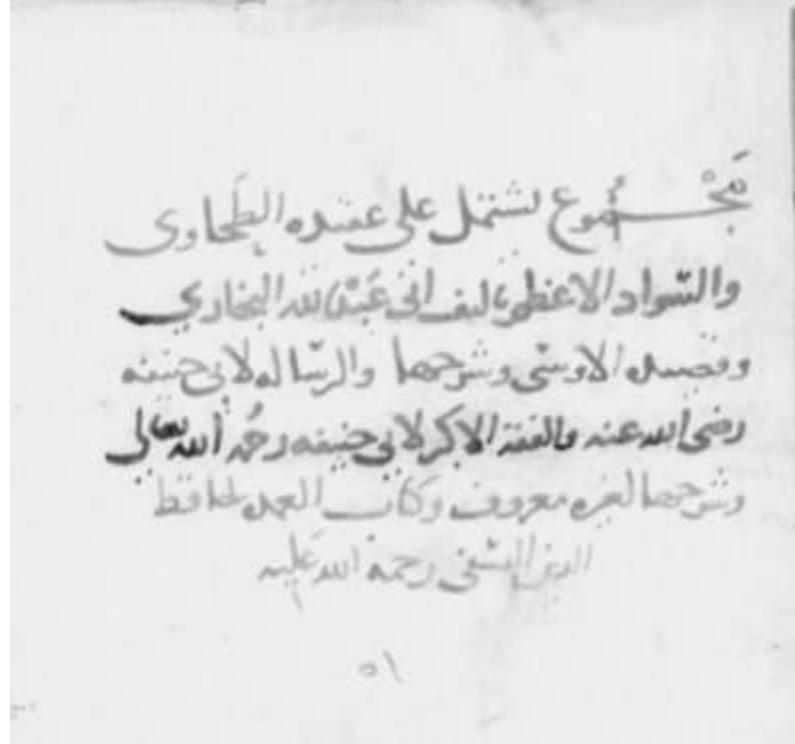 مَجْمُوع يشتمل على عقيده الطَحاوى
والسّواد الاعظم تاليف ابى عَبْد الله البخاري
وقصيده الاوسى وشرحها والرسّاله لابى حنيفه
رضى الله عنه والفقه الاكبر لابى حنيفه رحمُه الله تعالى
وشرحها لغيره معروف وكتاب العمده لحافظ
الدين النسّفى رحمة الله عَليه
٥١